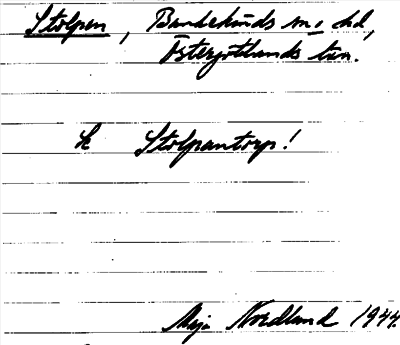 Stolpen, Bankekinds sn o hd,
Östergötlands län.
k Stolpantorp!
Maja Nordlund 1944.